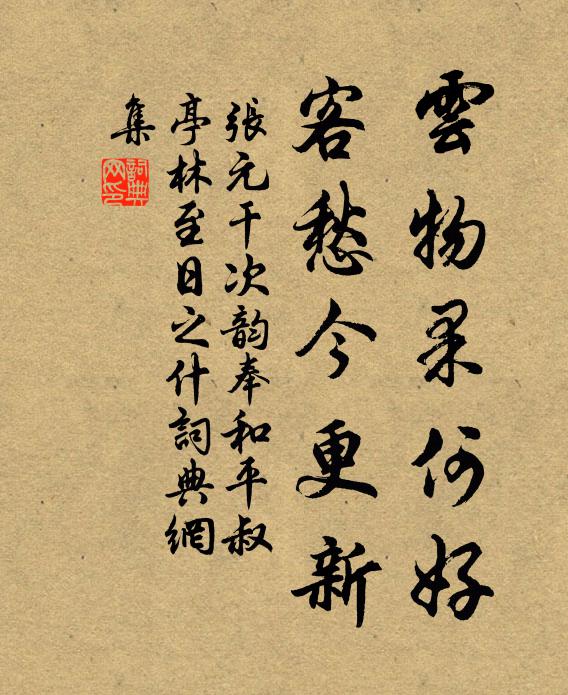 雲物果何好
客愁今更新
張元干次韵奉和平叔
亭林至日之什詞典網
集
詞典
网印